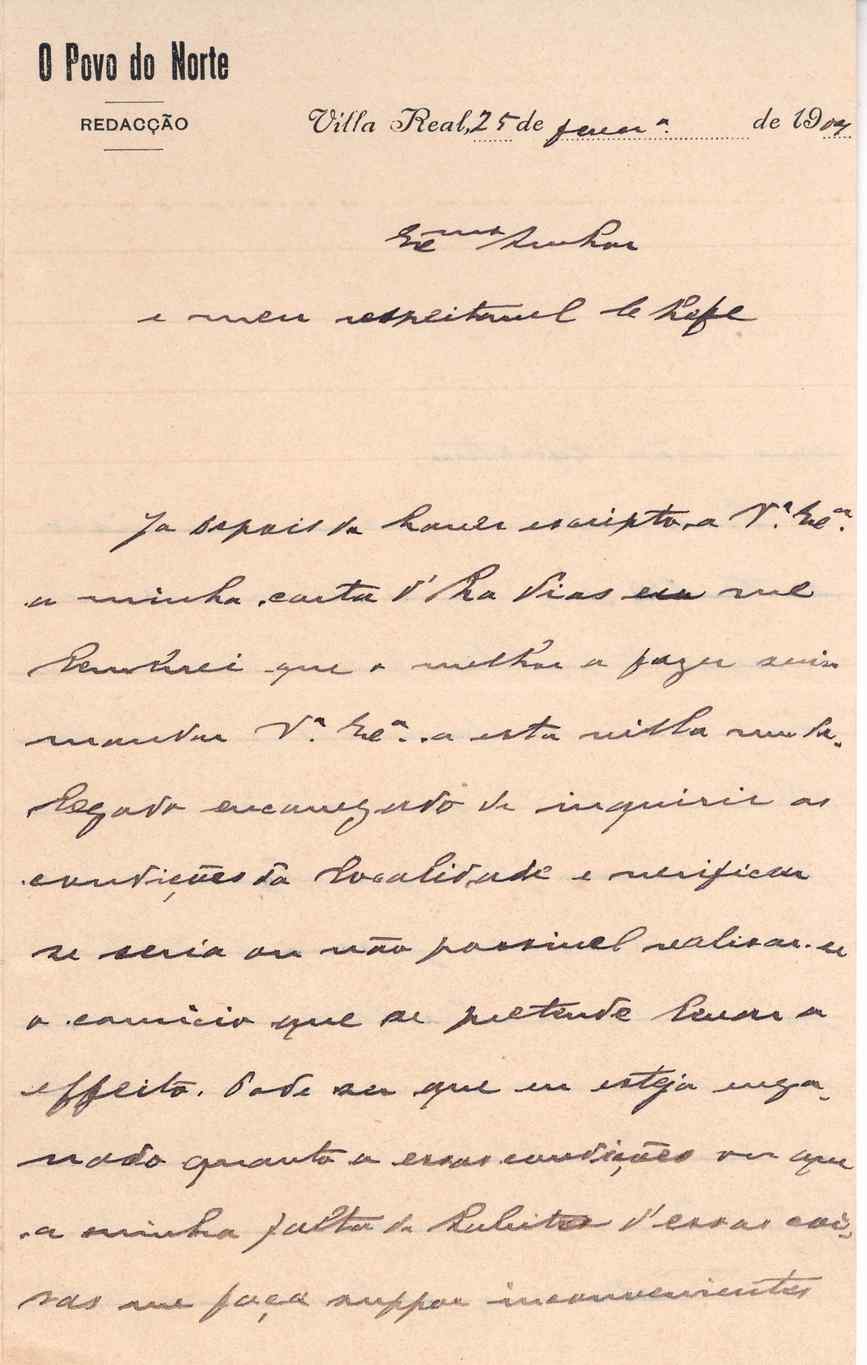 O Povo do Norte
REDACÇÃO
Villa Real, 25 de fever.º de 1907
Exᵐᵒ Senhor
e meu respeitavel Chefe
Ja depois de haver escripto a V.ª Exᵃ.
a minha carta d'ha dias eu me
lembrei que o melhor a fazer seria
mandar V.ª Exᵃ. a esta villa um de-
legado encarregado de inquirir as
condições da localidade e verificar
se seria ou não possivel realisar-se
o comicio que se pretende levar a
effeito. Pode ser que eu esteja enga-
nado quanto a essas condições ou que
a minha falta de habito d'essas coi-
sas me faça suppor inconvenientes